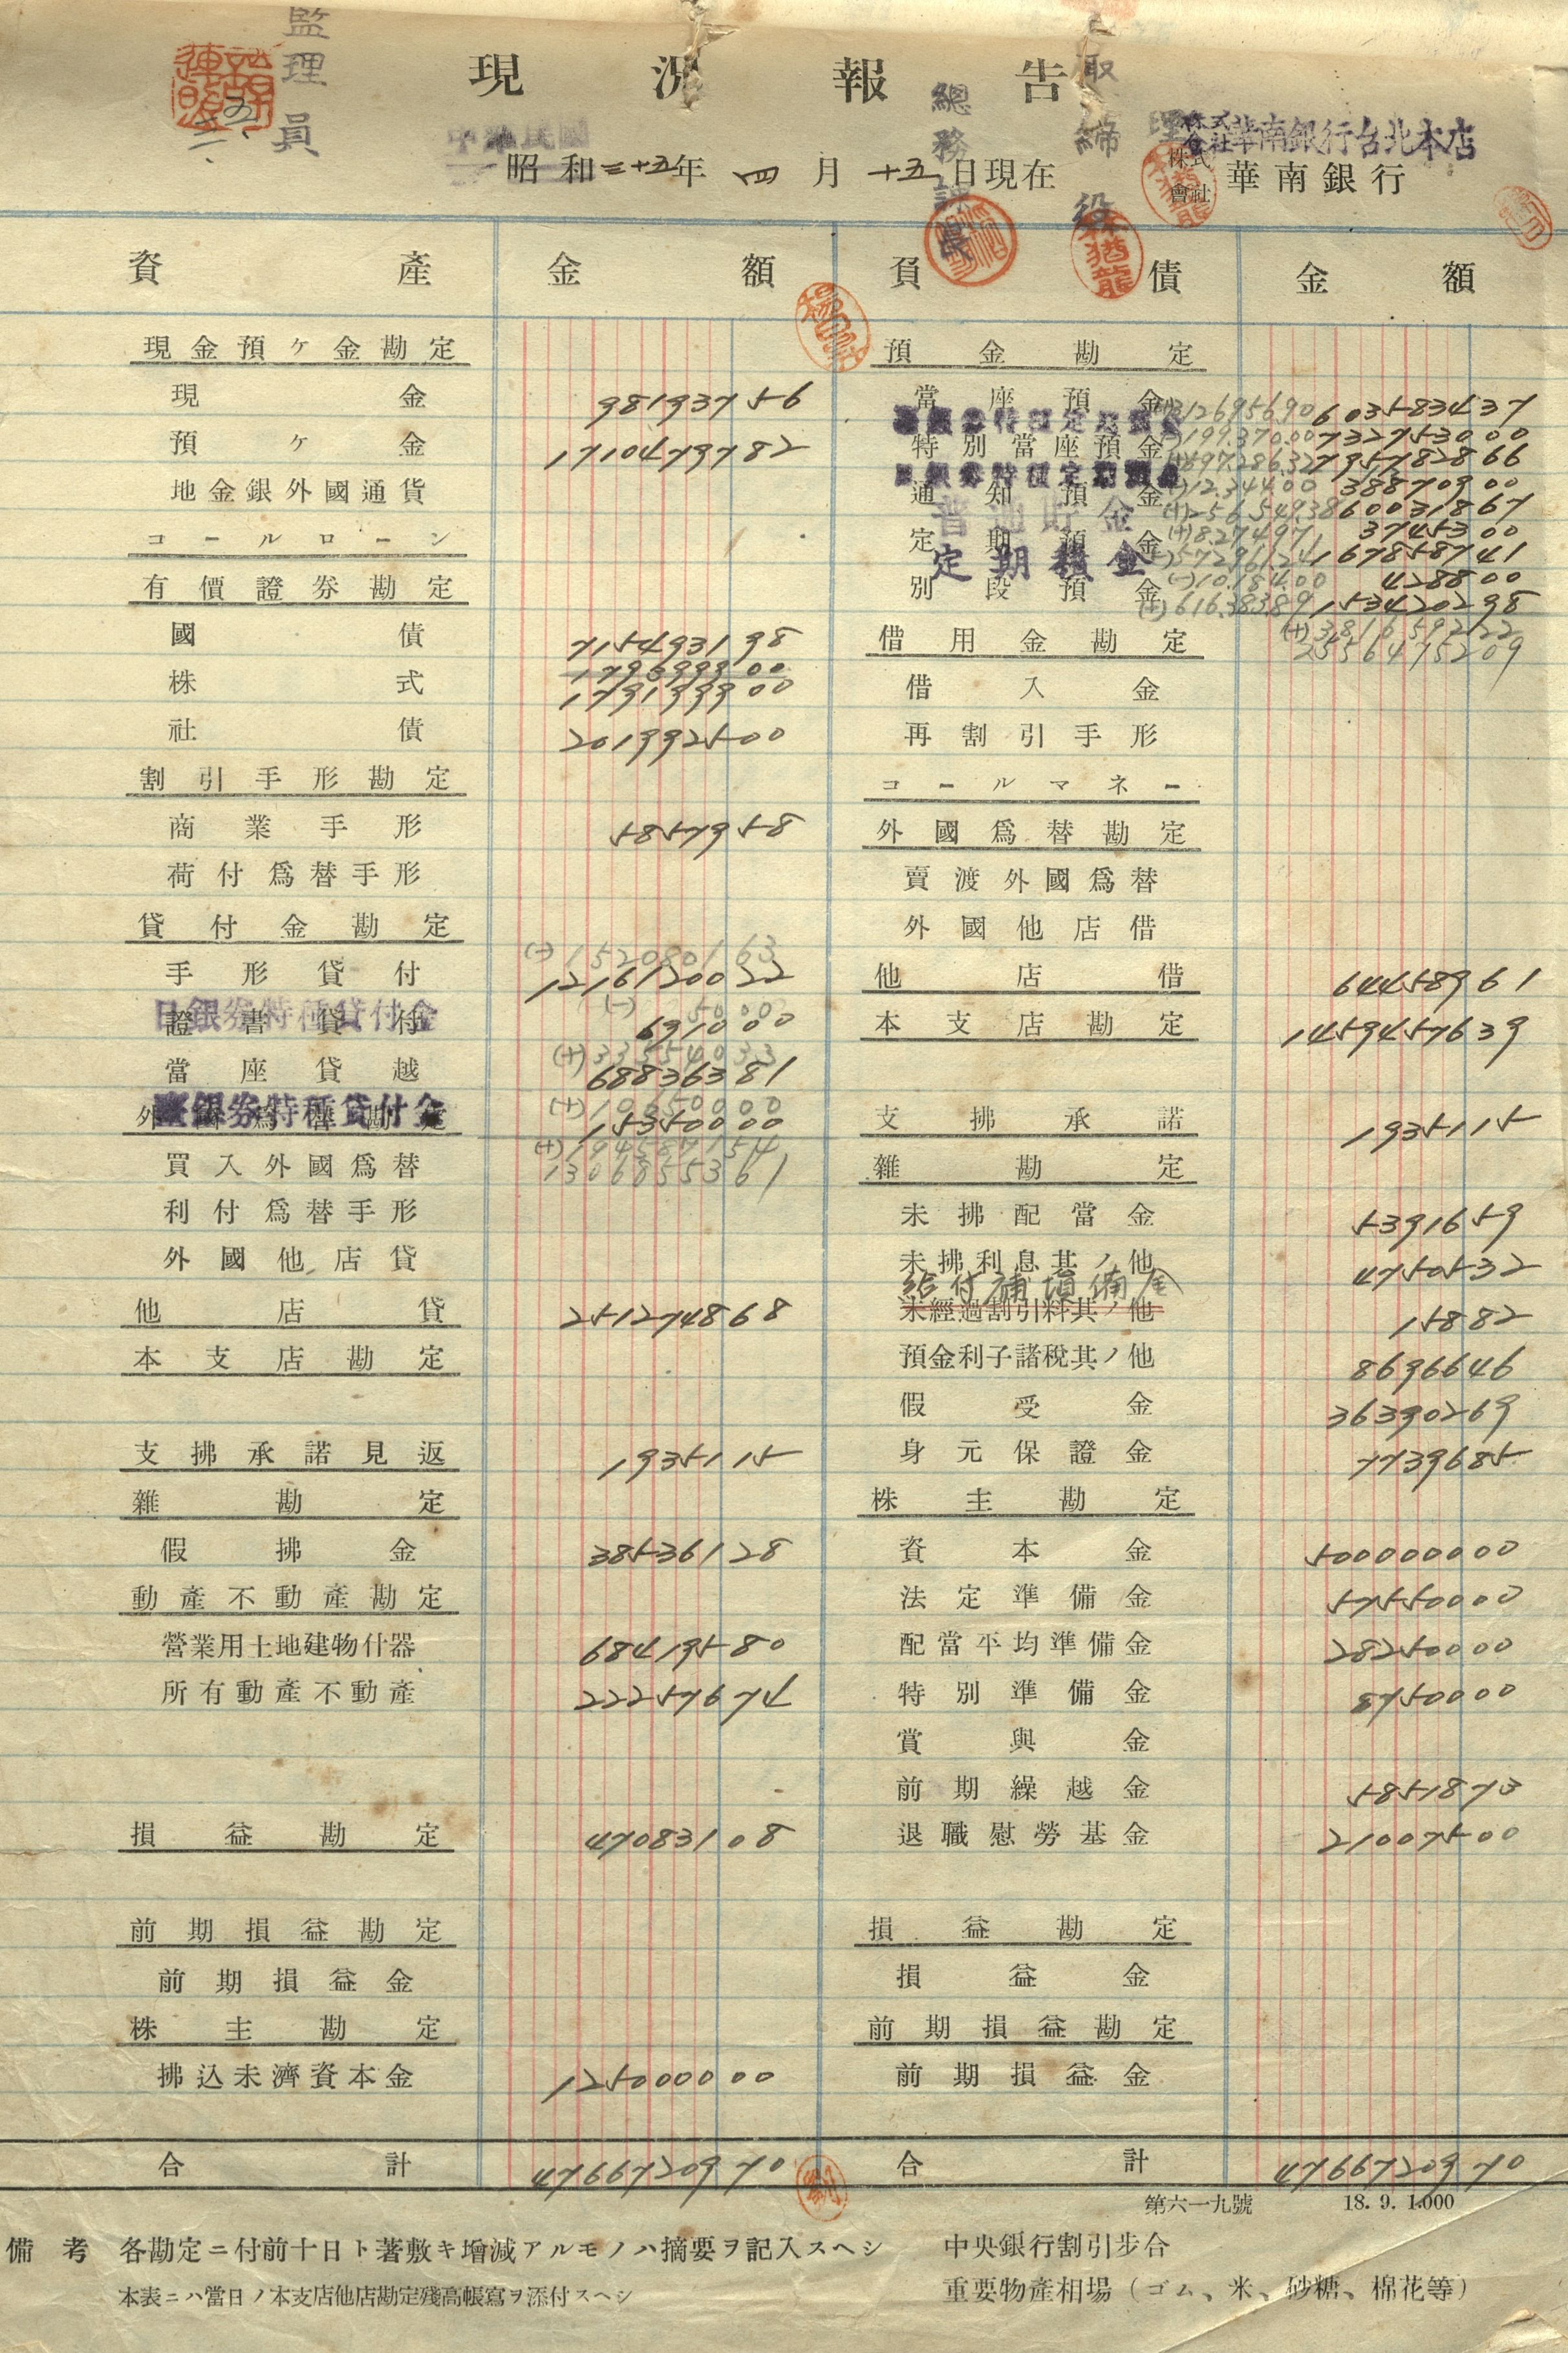 監理員
現況報告
總務課長
取締役
株式會社華南銀行台北本店
中華民國
昭和三十五年 四月 十五日現在
株式會社 華南銀行
資產 金額 負債 金額
現金預ヶ金勘定
現金 98193756
預ヶ金 1710479782
地金銀外國通貨
コールローン
有價證券勘定
國債 715493198
株式 179699900
179199900
社債 201992500
割引手形勘定
商業手形 5857958
荷付爲替手形
貸付金勘定
(-)152080163
手形貸付 1216120022
(-)5000
日銀券特種貸付金
證書貸付 691000
(+)33554033
當座貸越 68836381
(+)10650000
銀券特種貸付金
外國爲替勘定 15350000
買入外國爲替 1306855361
利付爲替手形
外國他店貸
他店貸 251274868
本支店勘定
支拂承諾見返 1935115
雜勘定
假拂金 38536128
動產不動產勘定
營業用土地建物什器 68419580
所有動產不動產 22257674
損益勘定 47083108
前期損益勘定
前期損益金
株主勘定
拂込未濟資本金 125000000
合計 4766720970
預金勘定
當座預金 603583437
特別當座預金 732753000
795782866
通知預金 38870900
普通貯金 60031867
定期預金 3745300
定期積金 167858741
別段預金 428800
153420298
借用金勘定 (+)381659222
2556475209
借入金
再割引手形
コールマネー
外國爲替勘定
賣渡外國爲替
外國他店借
他店借 64458961
本支店勘定 1459457639
支拂承諾 1935115
雜勘定
未拂配當金 5391659
未拂利息其ノ他 4750532
給付補塡備金
未經過割引料其ノ他 15882
預金利子諸稅其ノ他 8696646
假受金 36390269
身元保證金 7739685
株主勘定
資本金 500000000
法定準備金 57550000
配當平均準備金 28250000
特別準備金 8750000
賞與金
前期繰越金 5851873
退職慰勞基金 21007500
損益勘定
損益金
前期損益勘定
前期損益金
合計 4766720970
第六一九號 18. 9. 1.000
備考 各勘定ニ付前十日ト著敷キ增減アルモノハ摘要ヲ記入スヘシ
本表ニハ當日ノ本支店他店勘定殘高帳寫ヲ添付スヘシ
中央銀行割引步合
重要物產相場（ゴム、米、砂糖、棉花等）